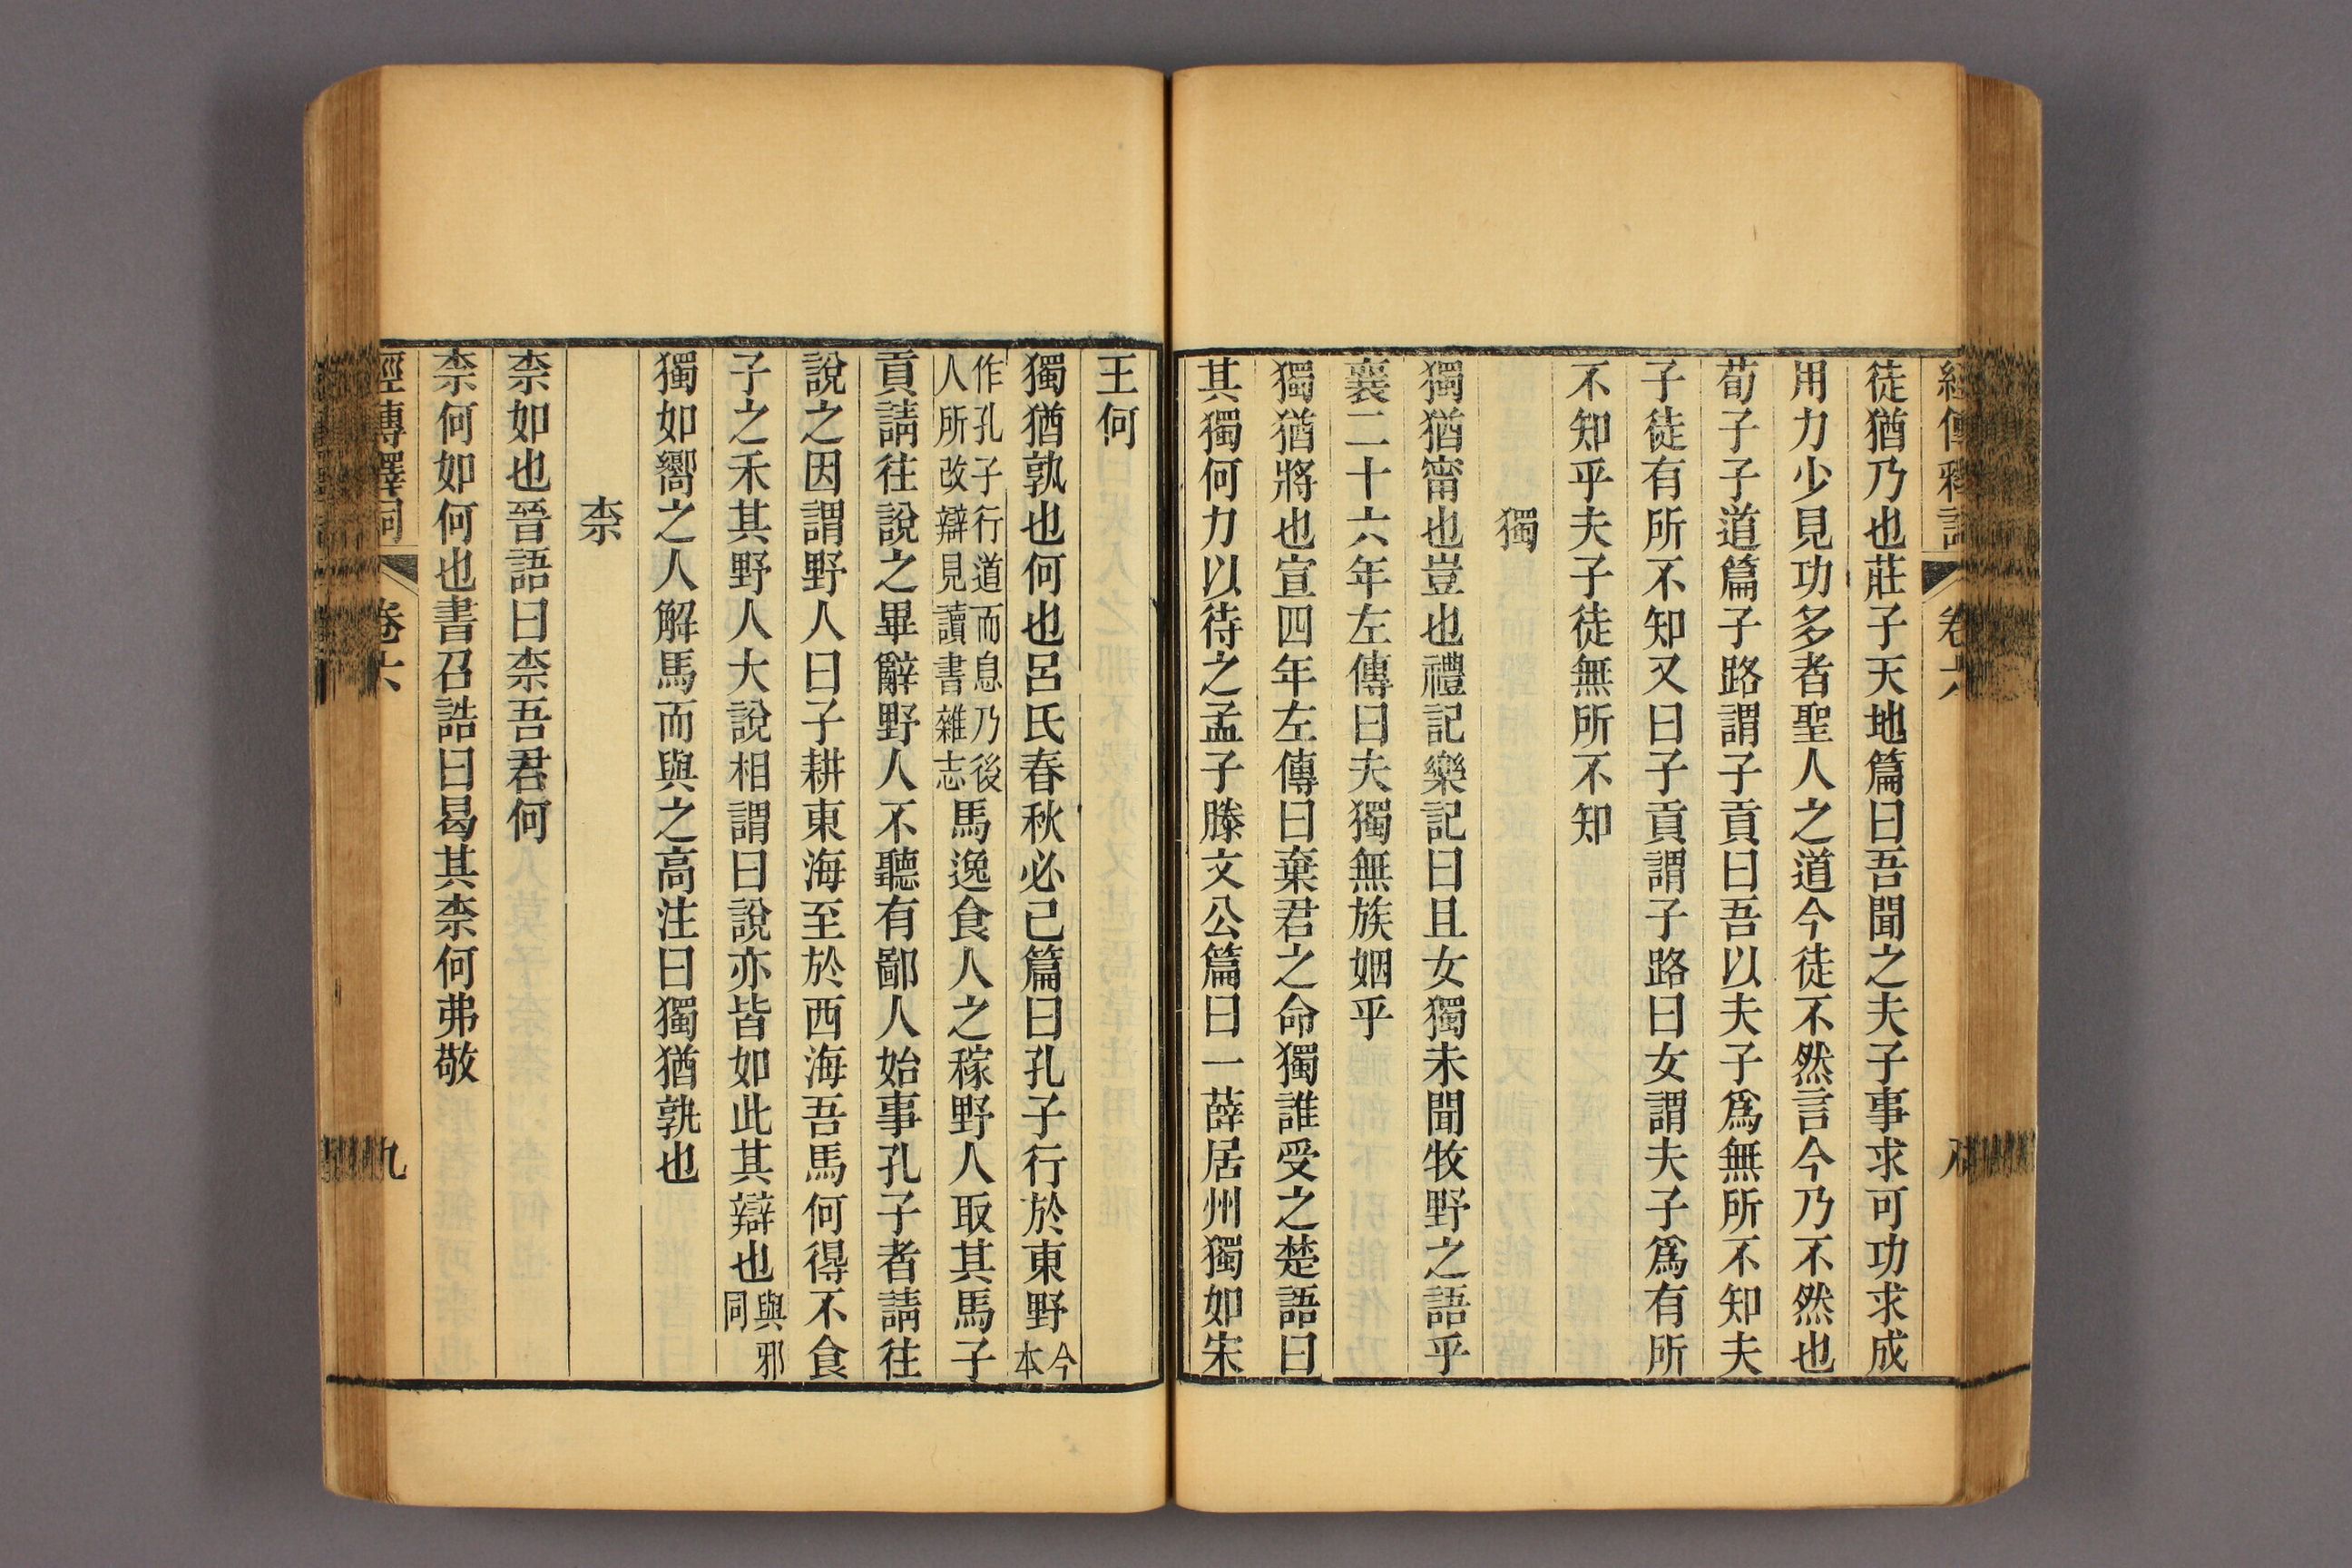 經傳釋詞 卷六 八
徒猶乃也莊子天地篇曰吾聞之夫子事求可功求成
用力少見功多者聖人之道今徒不然言今乃不然也
荀子子道篇子路謂子貢曰吾以夫子爲無所不知夫
子徒有所不知又曰子貢謂子路曰女謂夫子爲有所
不知乎夫子徒無所不知
獨
獨猶甯也豈也禮記樂記曰且女獨未聞牧野之語乎
襄二十六年左傳曰夫獨無族姻乎
獨猶將也宣四年左傳曰棄君之命獨誰受之楚語曰
其獨何力以待之孟子滕文公篇曰一薛居州獨如宋
王何
獨猶孰也何也呂氏春秋必己篇曰孔子行於東野今本
作孔子行道而息乃後人所改辯見讀書雜志馬逸食人之稼野人取其馬子
貢請往說之畢辭野人不聽有鄙人始事孔子者請往
說之因謂野人曰子耕東海至於西海吾馬何得不食
子之禾其野人大說相謂曰說亦皆如此其辯也與邪同
獨如嚮之人解馬而與之高注曰獨猶孰也
柰
柰如也晉語曰柰吾君何
柰何如何也書召誥曰曷其柰何弗敬
經傳釋詞 卷六 九